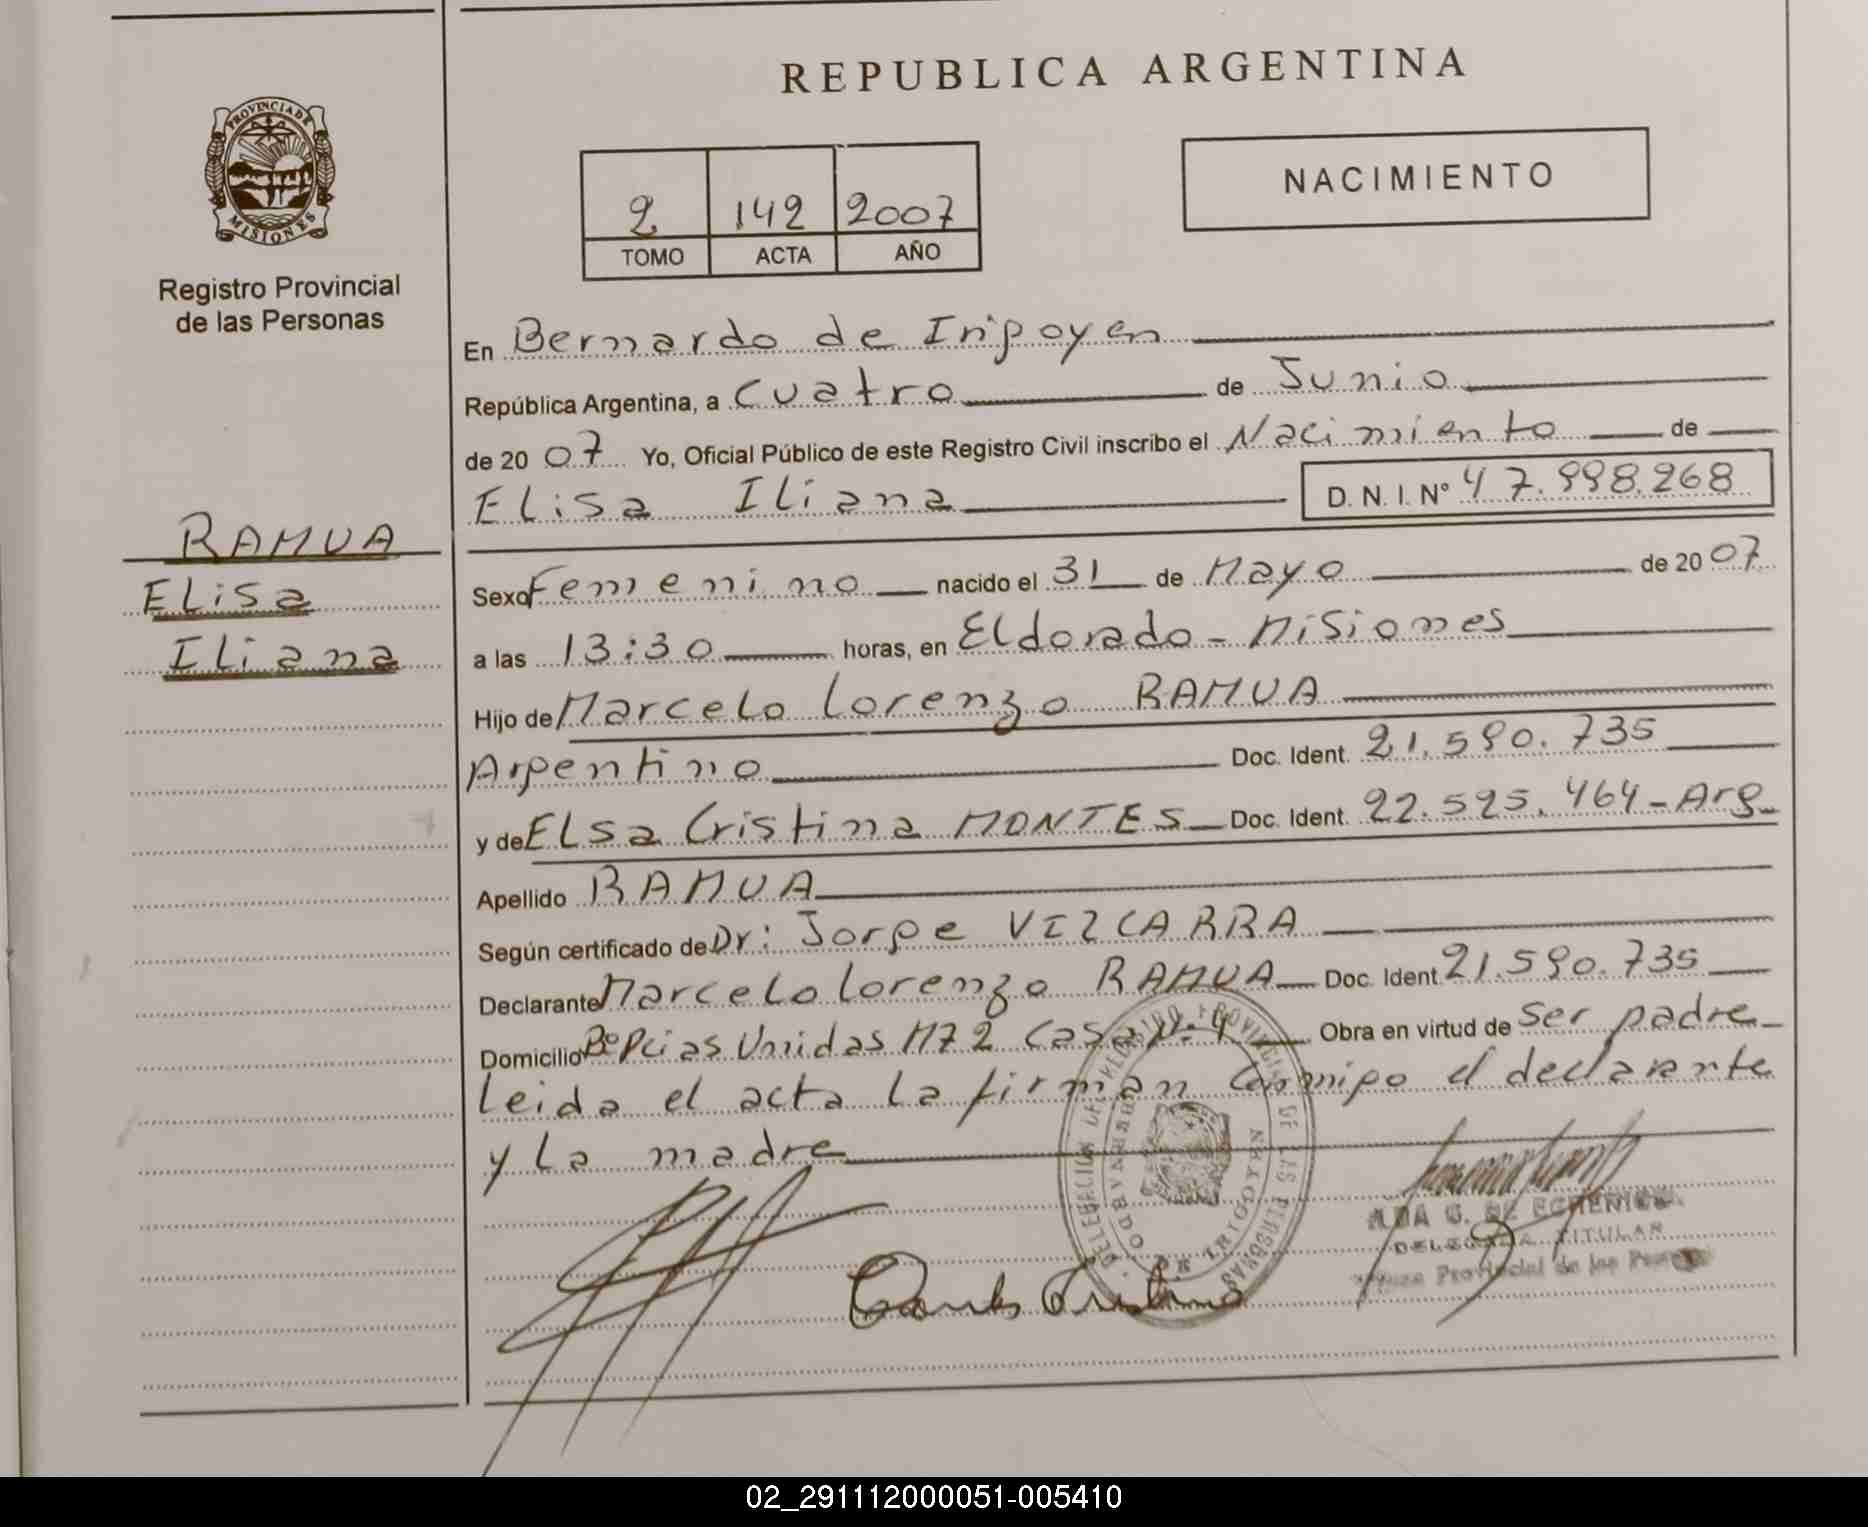 REPUBLICA ARGENTINA
PROVINCIA DE
MISIONES
Registro Provincial
de las Personas
2 142 2007
TOMO ACTA AÑO
NACIMIENTO
En Bernardo de Irigoyen
República Argentina, a Cuatro de Junio
de 20 07 Yo, Oficial Público de este Registro Civil inscribo el Nacimiento de
Elisa Iliana D. N. I. Nº 47.998.268
RAMUA
Elisa
Iliana
Sexo Femenino nacido el 31 de Mayo de 20 07
a las 13:30 horas, en Eldorado - Misiones
Hijo de Marcelo Lorenzo RAMUA
Argentino Doc. Ident. 21.590.735
y de Elsa Cristina MONTES Doc. Ident. 22.525.464 - Arg
Apellido RAMUA
Según certificado de Dr: Jorge VIZCARRA
Declarante Marcelo Lorenzo RAMUA Doc. Ident. 21.590.735
Domicilio Bº Pcias Unidas Mz 2 Casa Nº 4 Obra en virtud de ser padre
Leida el acta la firman conmigo el declarante
y la madre
DELEGACION DEL REGISTRO PROVINCIAL DE LAS PERSONAS
BERNARDO DE IRIGOYEN
DELEGADA TITULAR
Provincial de las
02_291112000051-005410